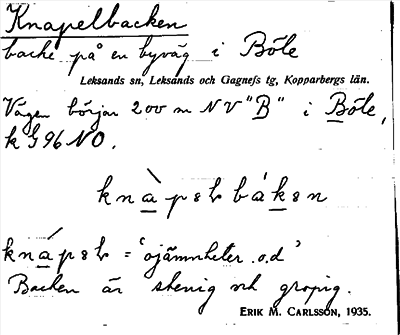 Knapelbacken
backe på en byväg i Böle
Leksands sn, Leksands och Gagnefs tg, Kopparbergs län.
Vägen börjar 200 m NV "B" i Böle,
k G 96 NO.
= 'ojämnheter o.d'
Backen är stenig och gropig.
ERIK M. CARLSSON, 1935.